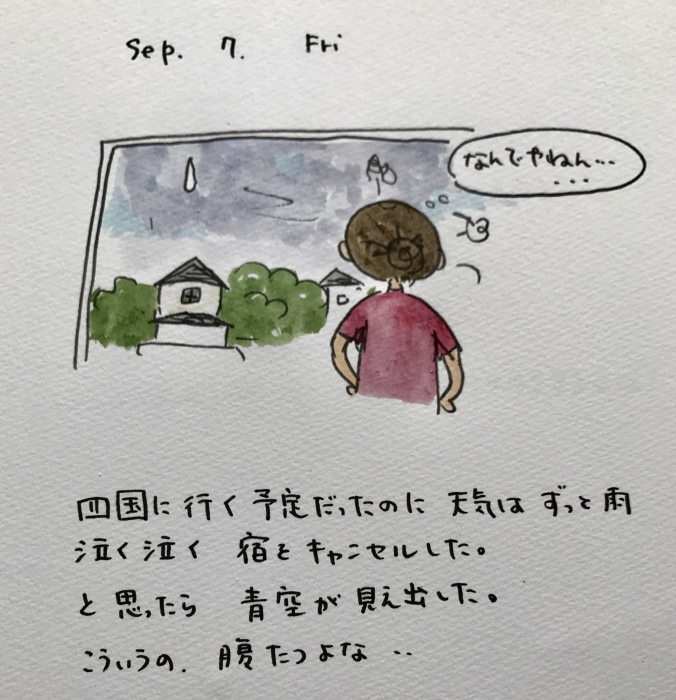 Sep. 7. Fri
なんでやねん...
...
四国に行く予定だったのに 天気は ずっと雨
泣く泣く 宿をキャンセルした。
と思ったら 青空が見え出した。
こういうの. 腹たつよな ..